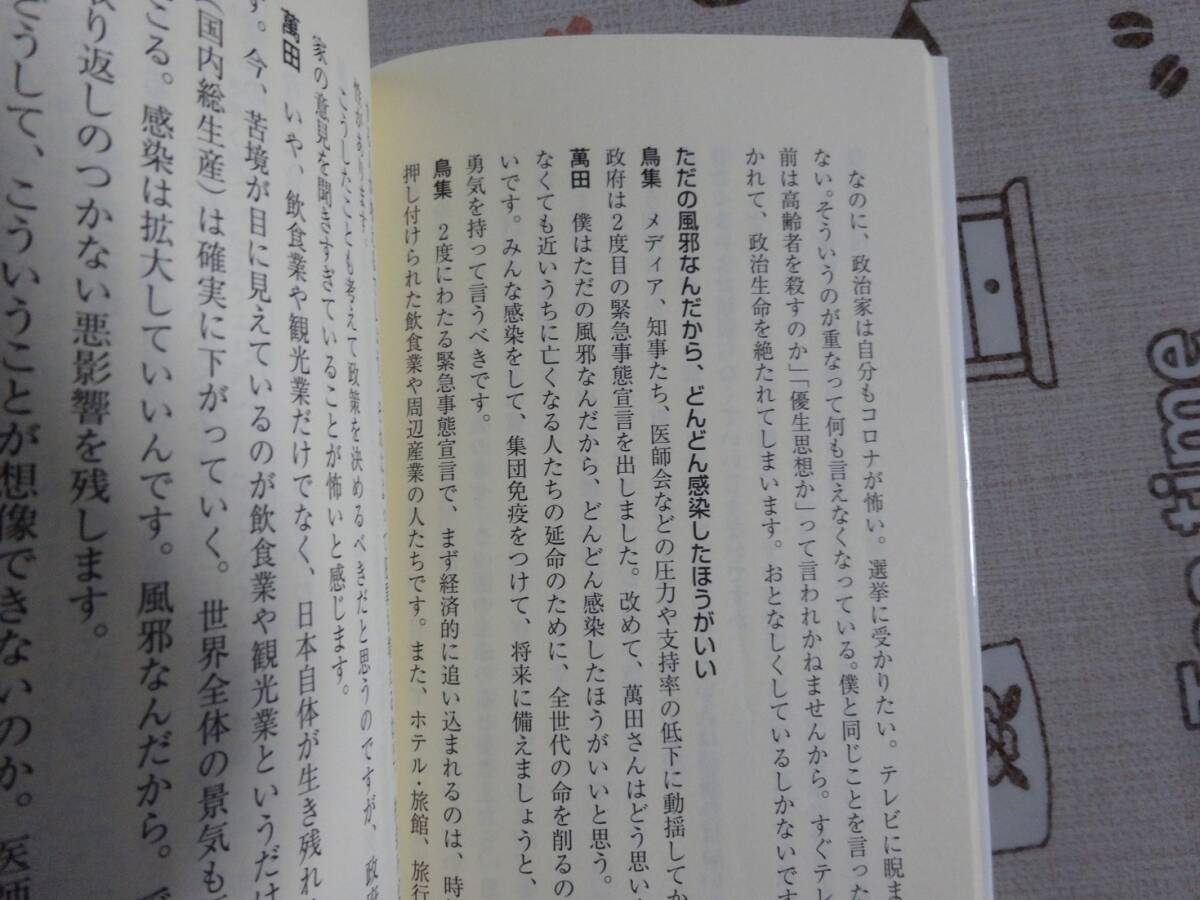 なのに、政治家は自分もコロナが怖い。選挙に受かりたい。テレビに睨ま
ない。そういうのが重なって何も言えなくなっている。僕と同じことを言った
前は高齢者を殺すのか」「優生思想か」って言われかねませんから。すぐテレ
かれて、政治生命を絶たれてしまいます。おとなしくしているしかないです
ただの風邪なんだから、どんどん感染したほうがいい
鳥集　メディア、知事たち、医師会などの圧力や支持率の低下に動揺してか
政府は2度目の緊急事態宣言を出しました。改めて、萬田さんはどう思い
萬田　僕はただの風邪なんだから、どんどん感染したほうがいいと思う。
なくても近いうちに亡くなる人たちの延命のために、全世代の命を削るの
いです。みんな感染をして、集団免疫をつけて、将来に備えましょうと、
勇気を持って言うべきです。
鳥集　2度にわたる緊急事態宣言で、まず経済的に追い込まれるのは、時
押し付けられた飲食業や周辺産業の人たちです。また、ホテル・旅館、旅行
こうしたことも考えて政策を決めるべきだと思うのですが、政府
家の意見を聞きすぎていることが怖いと感じます。
萬田　いや、飲食業や観光業だけでなく、日本自体が生き残れ
す。今、苦境が目に見えているのが飲食業や観光業というだけ
(国内総生産)は確実に下がっていく。世界全体の景気も
こる。感染は拡大していいんです。風邪なんだから。で
取り返しのつかない悪影響を残します。
どうして、こういうことが想像できないのか。医師
time